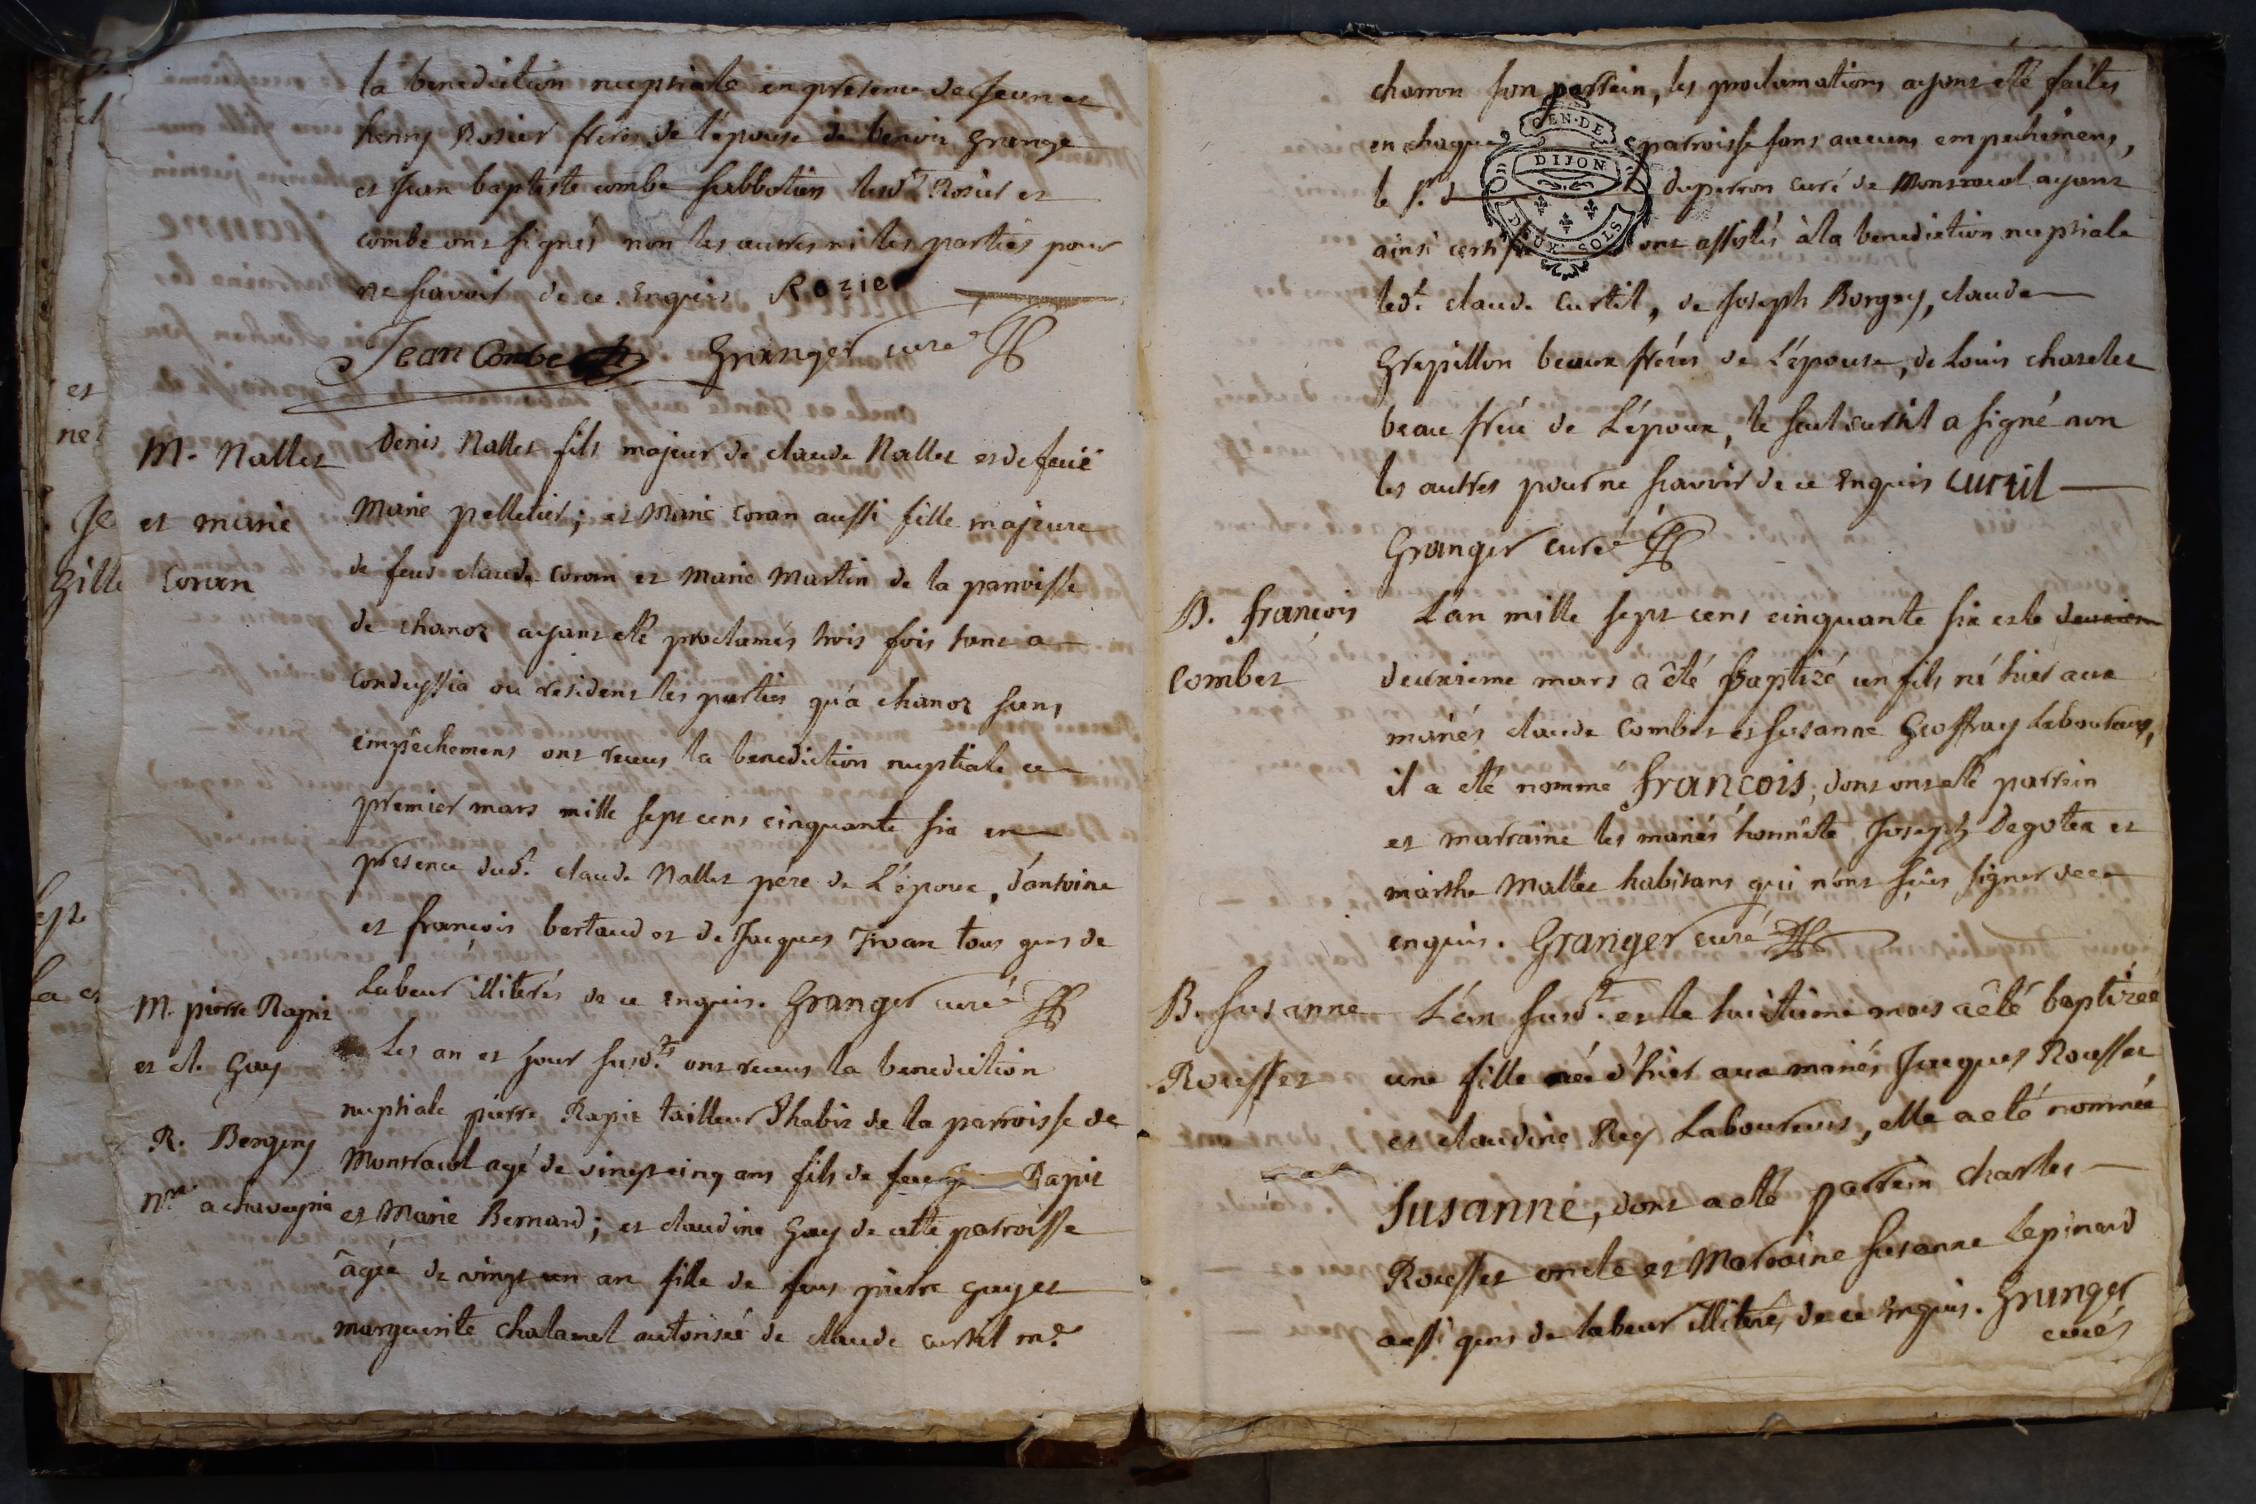 la benediction nuptiale en presence de Jean et
henry Rosier freres de l'epouse de benoit Grange
et Jean baptiste combe sabbotier lesd.ts Rosier et
combe ont signés non les autres ni les parties pour
ne scavoir de ce enquis Rozier
Jean Combe Granger curé
M. Nallet
et marie
Coran
denis Nallet fils majeur de claude Nallet et de feüe
Marie pelletier; et Marie Coran aussi fille majeure
de feus claude Coran et Marie Martin de la parroisse
de chanoz ayant esté proclamés trois fois tant a
Condeyssia ou resident les parties qu'a chanoz sans
empêchement ont receus la benediction nuptiale ce
premier mars mille sept cent cinquante six en
presence dud.t claude Nallet pere de L'époux, d'antoine
et françois bertaud et de Jacques Trvan tous gens de
Labeur illiterés de ce enquis. Granger curé
M. pierre Rapit
et cl. Gay
R. Bergery
n.re a chaveyria
Les an et Jour susd.ts ont receus la benediction
nuptiale pierre Rapit tailleur d'habit de la parroisse de
Montracol agé de vingt cinq ans fils de feu Rapit
et Marie Bernard; et claudine Gay de cette parroisse
âgée de vingt un an fille de feus pierre gay et
marguerite chalamel autorisée de claude curtil m.d
charron son parrein, les proclamations ayant été faites
en chaque parroisse sans aucuns empechemens,
GEN. DE
DIJON
DEUX SOLS
le s.r duperron curé de Montracol ayant
ainsi certifié ont assistés à la benediction nuptiale
led.t claude Curtil, de Joseph Borgey, claude
Grepillon beaux fréres de L'épouse, de Louis chatelet
beau frére de L'époux, le seul curtil a signé non
les autres pour ne scavoir de ce enquis curtil
Granger curé
B. françois
Combet
L'an mille sept cent cinquante six et le deuxiem
deuxieme mars a été baptizé un fils né hier aux
mariés claude Combet et Susanne Geoffray Laboureurs,
il a été nommé françois, dont ont esté parrein
et marraine les mariés honnête Joseph Degotex et
marthe Mallet habitans qui n'ont sçüs signer de ce
enquis. Granger curé
B. Susanne
Rousset
L'an susd.t et le huitieme mars a été baptizée
une fille née d'hier aux mariés Jacques Rousset
et claudine Rey Laboureurs, elle a eté nommée
Susanne, dont a eté parrein charles
Rousset oncle et Marraine Susanne Lepinard
aussi gens de labeur illiterés de ce enquis. Granger
curés